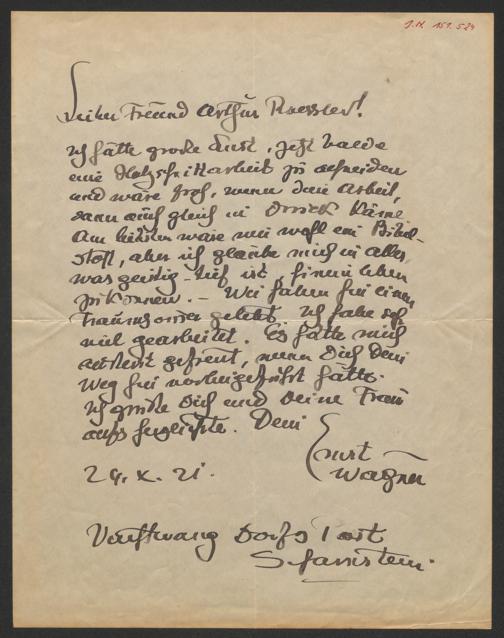 J.N. 151.524
Lieber Freund Arthur Roessler!
Ich hätte große Lust, jetzt balde
eine Holzschnittarbeit zu schneiden
und wäre froh, wenn die Arbeit,
dann auch gleich in Druck käme.
Am liebsten wäre mir wohl ein Bibel-
stoff, aber ich glaube mich in alles,
was geistig-tief ist, hinein leben
zu können. – Wir haben hier einen
Traumsommer gelebt. Ich habe sehr
viel gearbeitet. Es hätte mich
gefreut, wenn Dich Dein
Weg hier vorbeigeführt hätte.
Ich grüße Dich und Deine Frau
aufs herzlichste. Dein
Ernst
Wagner
29. X. 21.
Dorf Post